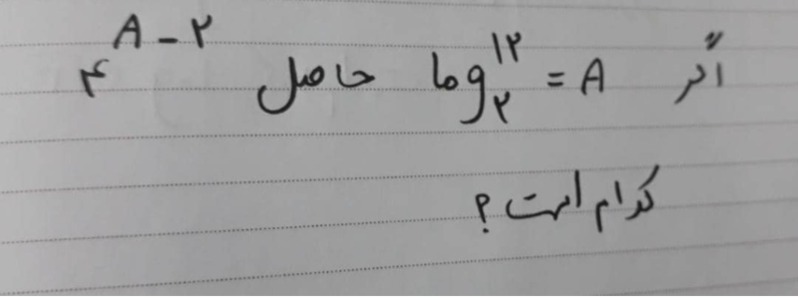 اگر log₂¹² = A حاصل ۴^(A-۲)
کدام است؟